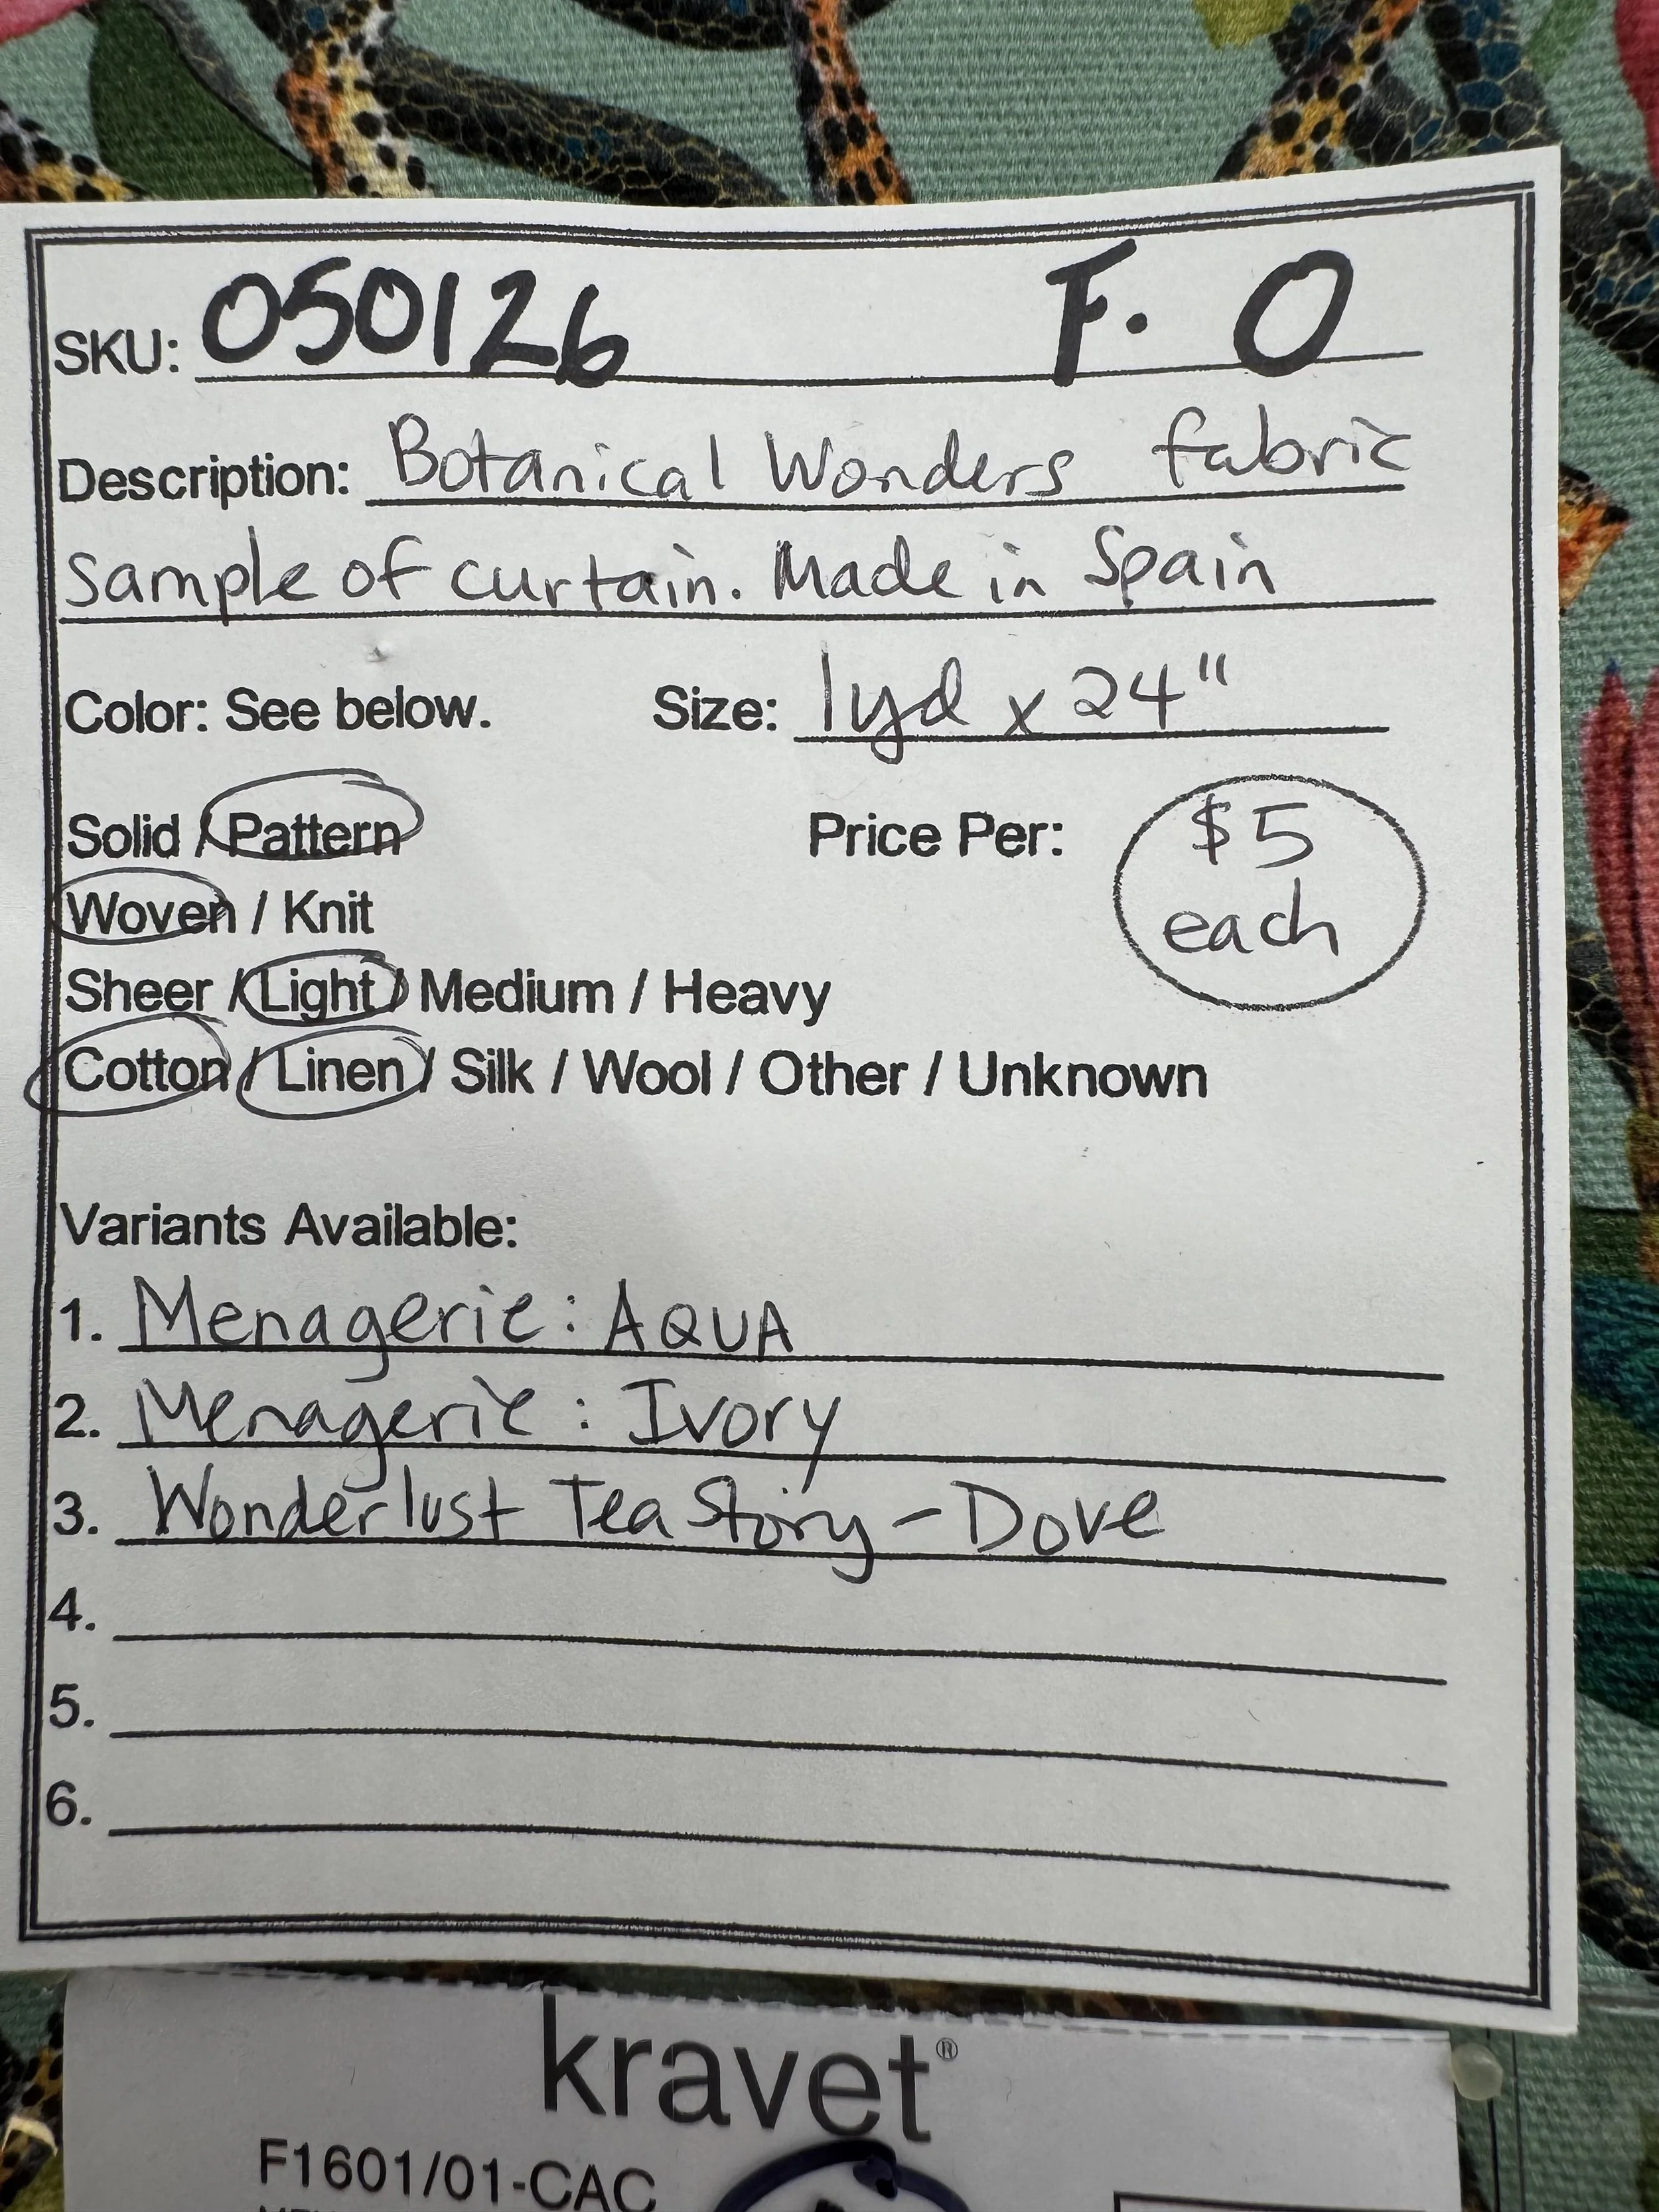 SKU: 050126 F. O
Description: Botanical Wonders fabric
Sample of curtain. Made in Spain
Color: See below. Size: 1yd x 24"
Solid / Pattern Price Per: $5 each
Woven / Knit
Sheer / Light / Medium / Heavy
Cotton / Linen / Silk / Wool / Other / Unknown
Variants Available:
1. Menagerie: AQUA
2. Menagerie: Ivory
3. Wonderlust Tea Story - Dove
4.
5.
6.
kravet®
F1601/01-CAC